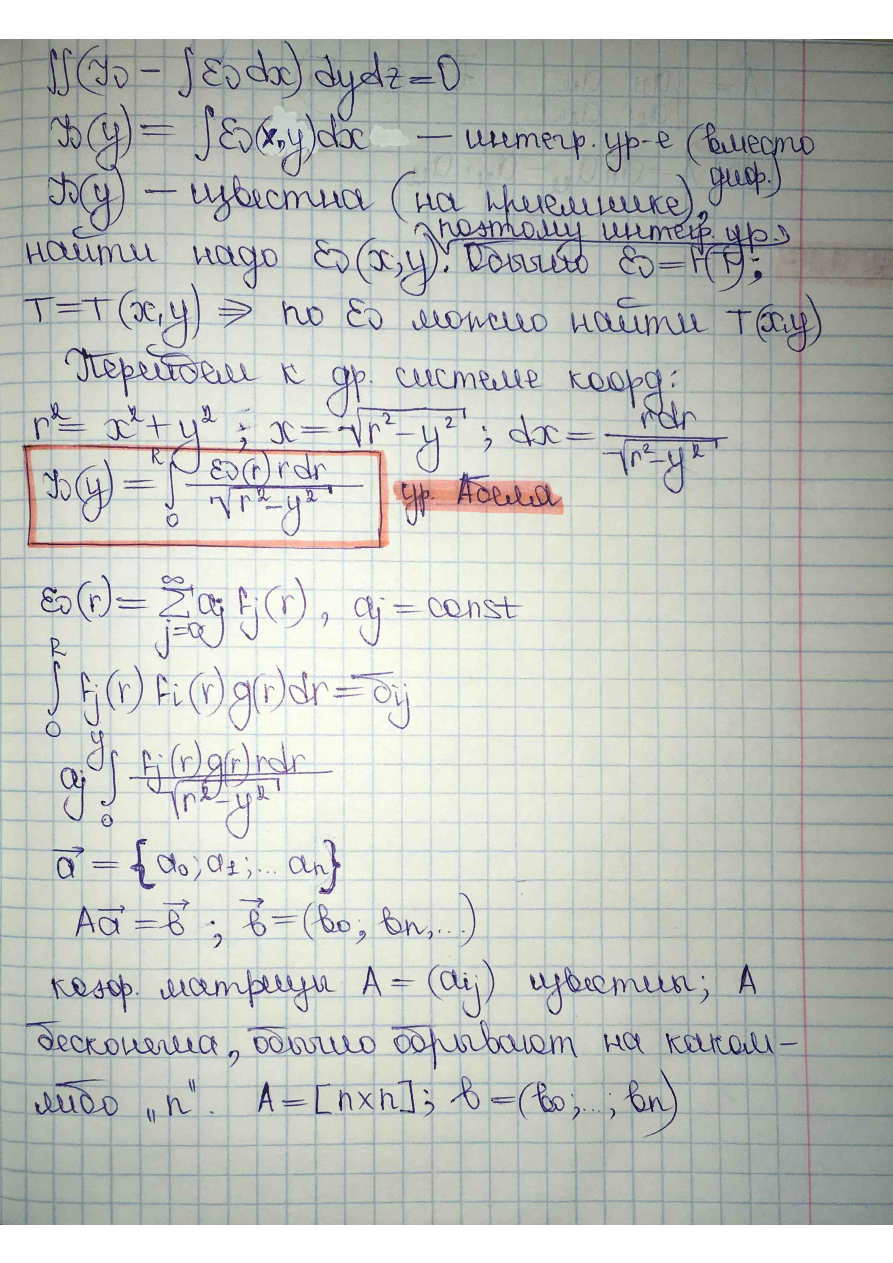 ∬(Iν − ∫ενdx) dydz=0
Iν(y) = ∫εν(x,y)dx — интегр. ур-е (вместо
диф.)
Iν(y) — известна (на приемнике),
поэтому интегр. ур.,
найти надо εν(x,y). Обычно εν=f(T);
T=T(x,y) ⇒ по εν можно найти T(x,y)
Перейдем к др. системе коорд:
r²= x²+y² ; x=√(r²−y²) ; dx= rdr/√(r²−y²)
Iν(y) = ∫₀ᴿ εν(r) rdr/√(r²−y²) ур. Абеля
εν(r)= ∑_{j=0}^∞ aj fj(r), aj=const
∫₀ᴿ fj(r) fi(r) g(r)dr=δij
aj ∫₀ʸ fj(r)g(r)rdr/√(r²−y²)
a⃗ = {a₀; a₁;... an}
Aa⃗=b⃗ ; b⃗=(b₀; bn,...)
коэф. матрицы A=(aij) известны; A
бесконечна, обычно обрывают на каком-
либо „n". A=[n×n]; b=(b₀;...; bn)